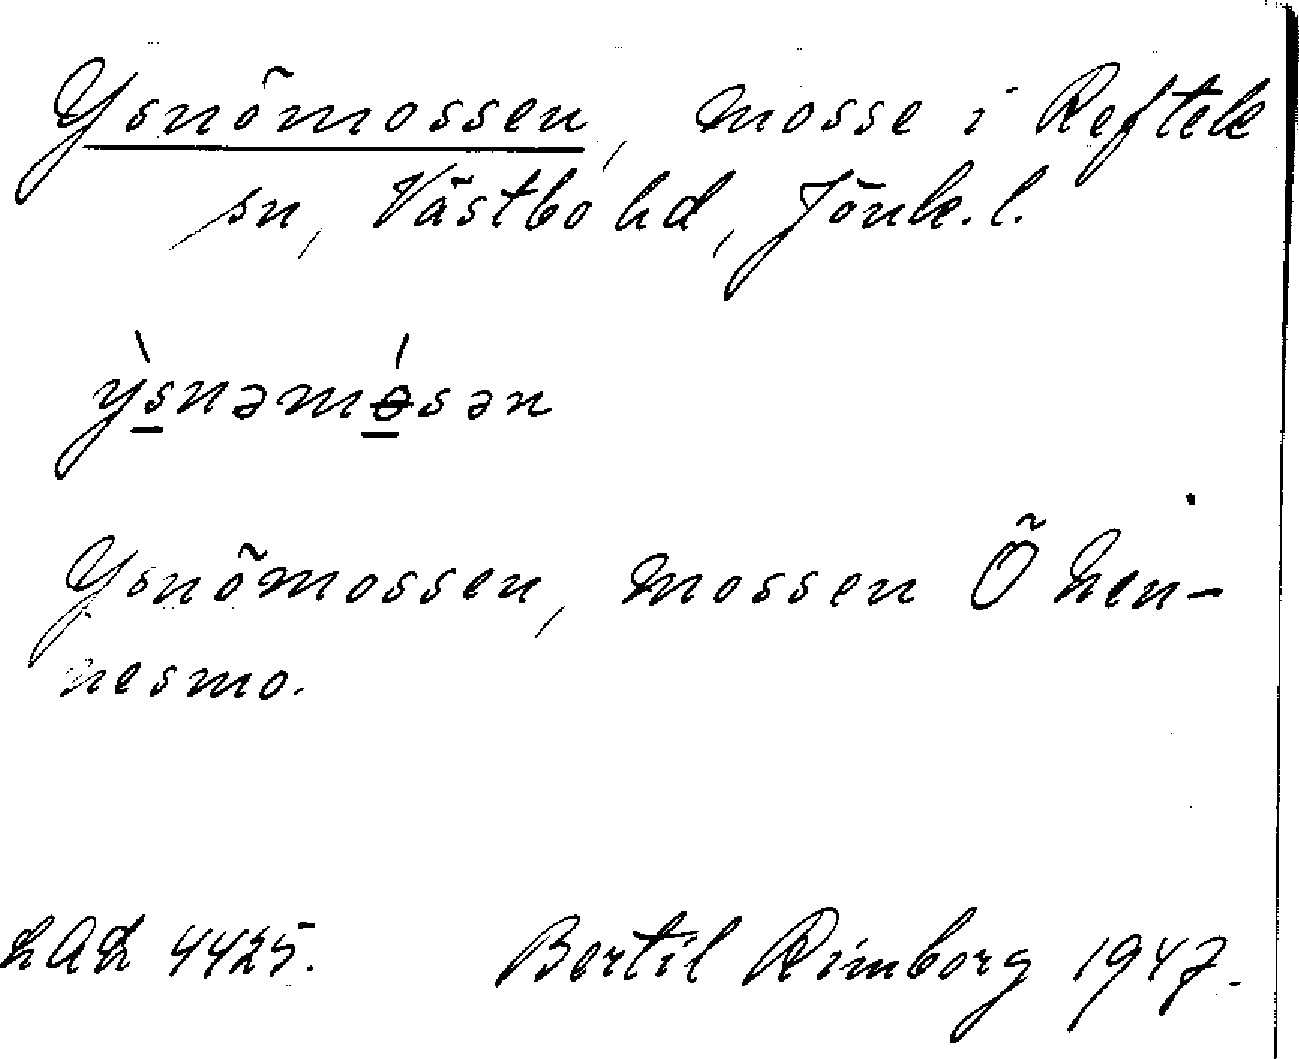 Ysnömossen, mosse i Reftele
sn, Västbo hd, Jönk. l.
ỳsnəmɵ́sən
Ysnömossen, mossen Ö hen-
nesmo.
LAL 4425. Bertil Rimborg 1947.